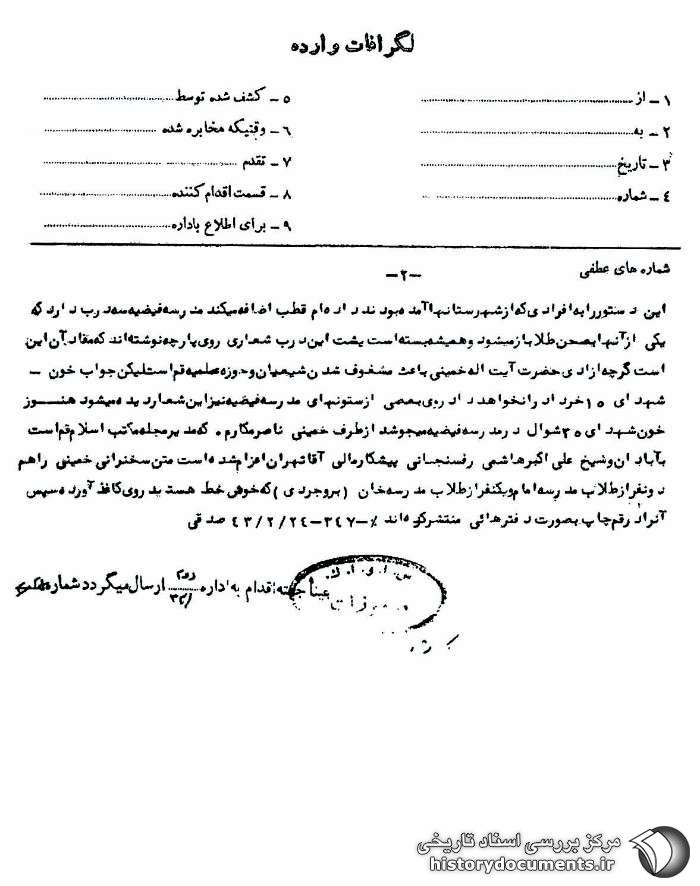 لگرافات وارده
۱ ـ از
۲ ـ به
۳ ـ تاریخ
۴ ـ شماره
۵ ـ کشف شده توسط
۶ ـ وقتیکه مخابره شده
۷ ـ تقدم
۸ ـ قسمت اقدام کننده
۹ ـ برای اطلاع باداره
شماره های عطفی
ـ ۲ ـ
این دستور را به افرادی که از شهرستانها آمده بودند داده ام قطب اضافه میکند مدرسه فیضیه سه درب دارد که
یکی از آنها بصحن طلا باز میشود و همیشه بسته است پشت این درب شعاری روی پارچه نوشته اند که مفاد آن این
است گرچه ازادی حضرت آیت اله خمینی باعث مشغوف شدن شیعیان و حوزه علمیه قم است لیکن جواب خون ـ
شهدای ۱۵ خرداد را نخواهد داد روی بعصی از ستونهای مدرسه فیضیه نیز این شعار دیده میشود هنـــوز
خون شهدای ۲۵ شوال در مدرسه فیضیه میجوشد از طرف خمینی ناصر مکارم . که مدیر مجله مکتب اسلام قم است
بآبادان و شیخ علی اکبر هاشمی رفسنجانی پیشکار مالی آقا تهران اعزام شده است متن سخنرانی خمینی را هم
دونفر از طلاب مدرسه امام و یکنفر از طلاب مدرسه خان (بروجردی) که خوش خط هستند بر روی کاغذ آورده سپس
آنرا در قم چاپ بصورت دفترهائی منتشر کرده اند ٪ـ ۳۴۷ـ ۴۳/۲/۲۴ صدقی
س.ا.و.ا.ک.
عیناً جهته اقدام به اداره ارسال میگردد شماره
مرکز بررسی اسناد تاریخی
historydocuments.ir